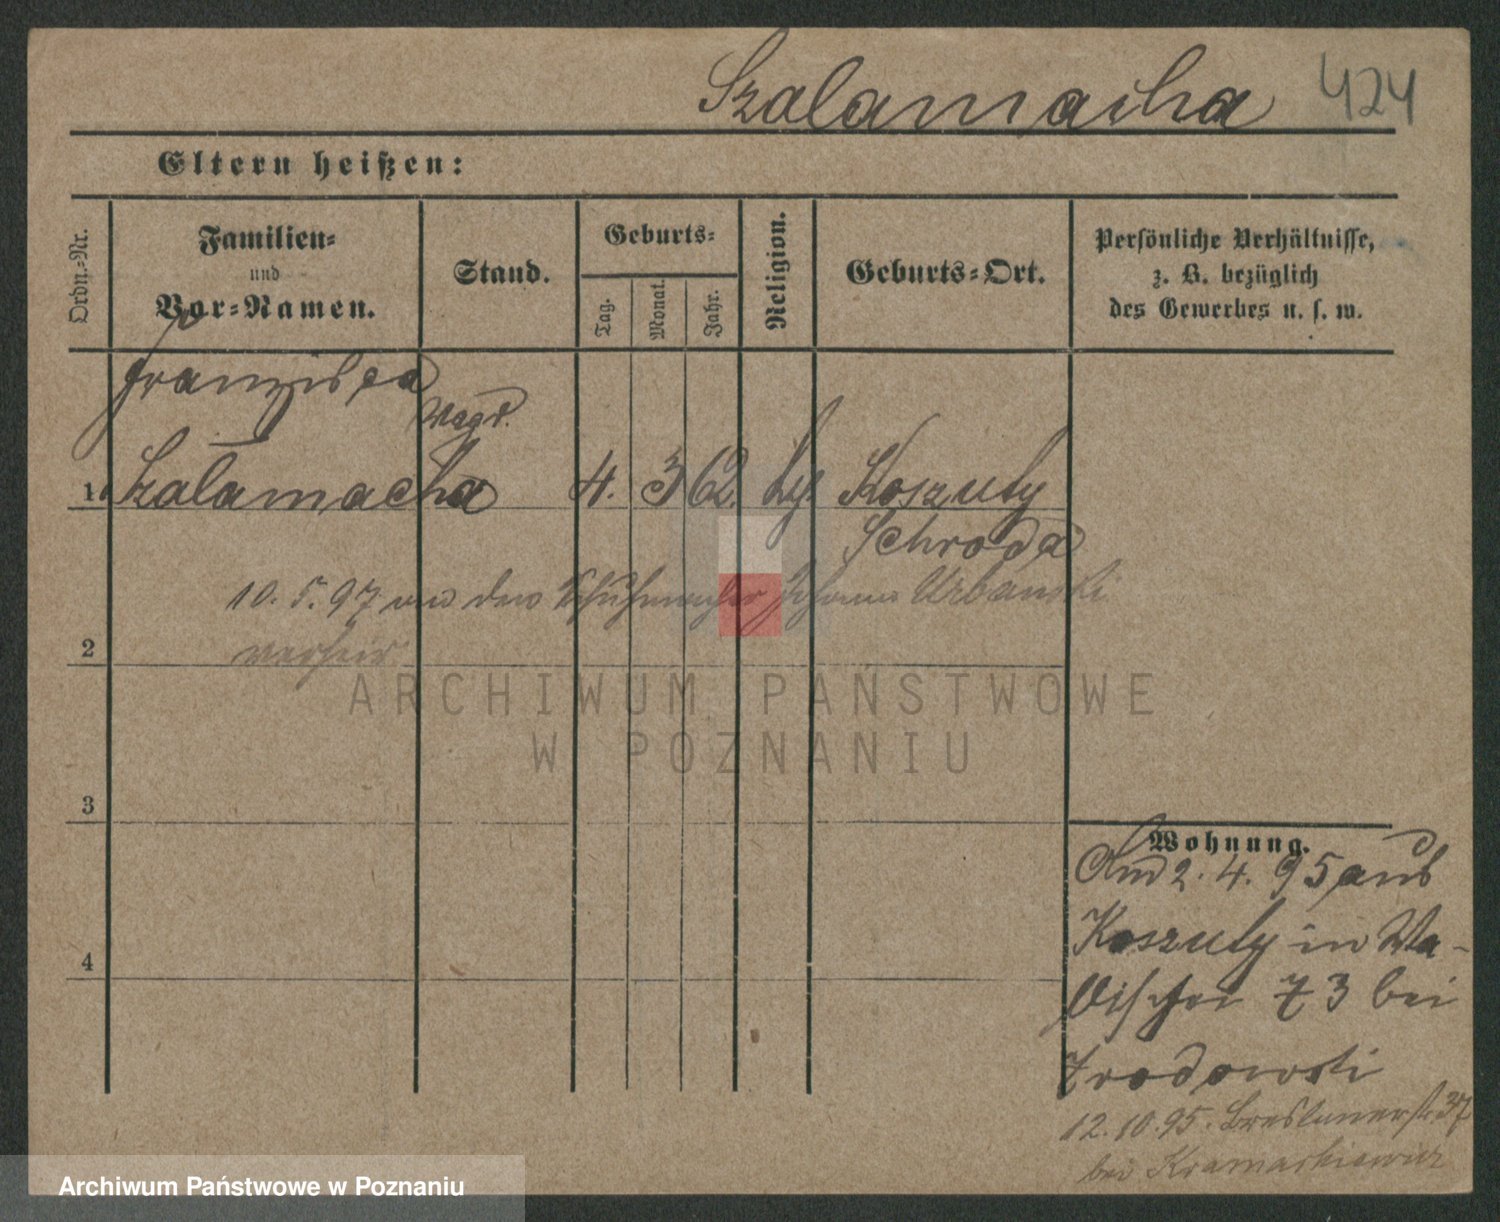 Szalamacha 424
Eltern heißen:
Ordn.=Nr.
Familien=
und
Vor=Namen.
Stand.
Geburts=
Tag.
Monat.
Jahr.
Religion.
Geburts=Ort.
Persönliche Verhältnisse,
z. B. bezüglich
des Gewerbes u. s. w.
Franziska
Magd.
1 Szalamacha 4. 3 62. Koszuty
Schroda
10. 5. 97 an den Schuhmacher Johann Urbanski
verheir
2
3
4
Wohnung.
2. 4. 95 aus
Koszuty in Wa-
lischei 73 bei
Zrodowski
12. 10. 95. Breslauerstr 37
bei Kramarkiewicz
ARCHIWUM PAŃSTWOWE
W POZNANIU
Archiwum Państwowe w Poznaniu